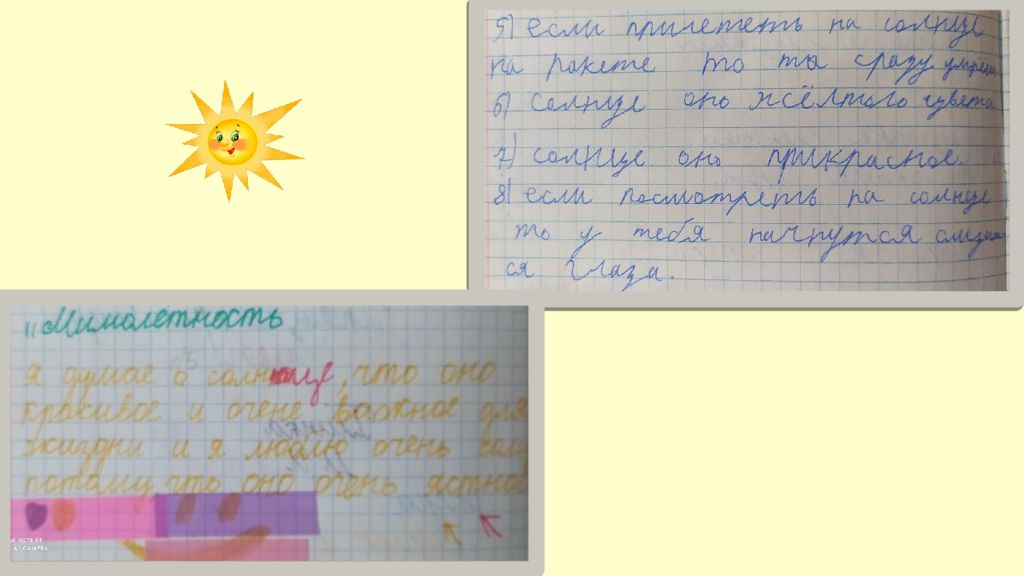 5) если прилететь на солнце
на ракете то ты сразу
6) солнце оно жёлтого цвета
7) солнце оно прикрасное.
8) если посмотреть на солнце
то у тебя начнутся
ся глаза.
"Мимолетность
я думае о солнце, что оно
красивое и очене важное для
жизни и я люблю очень
потому, что оно очень ястное